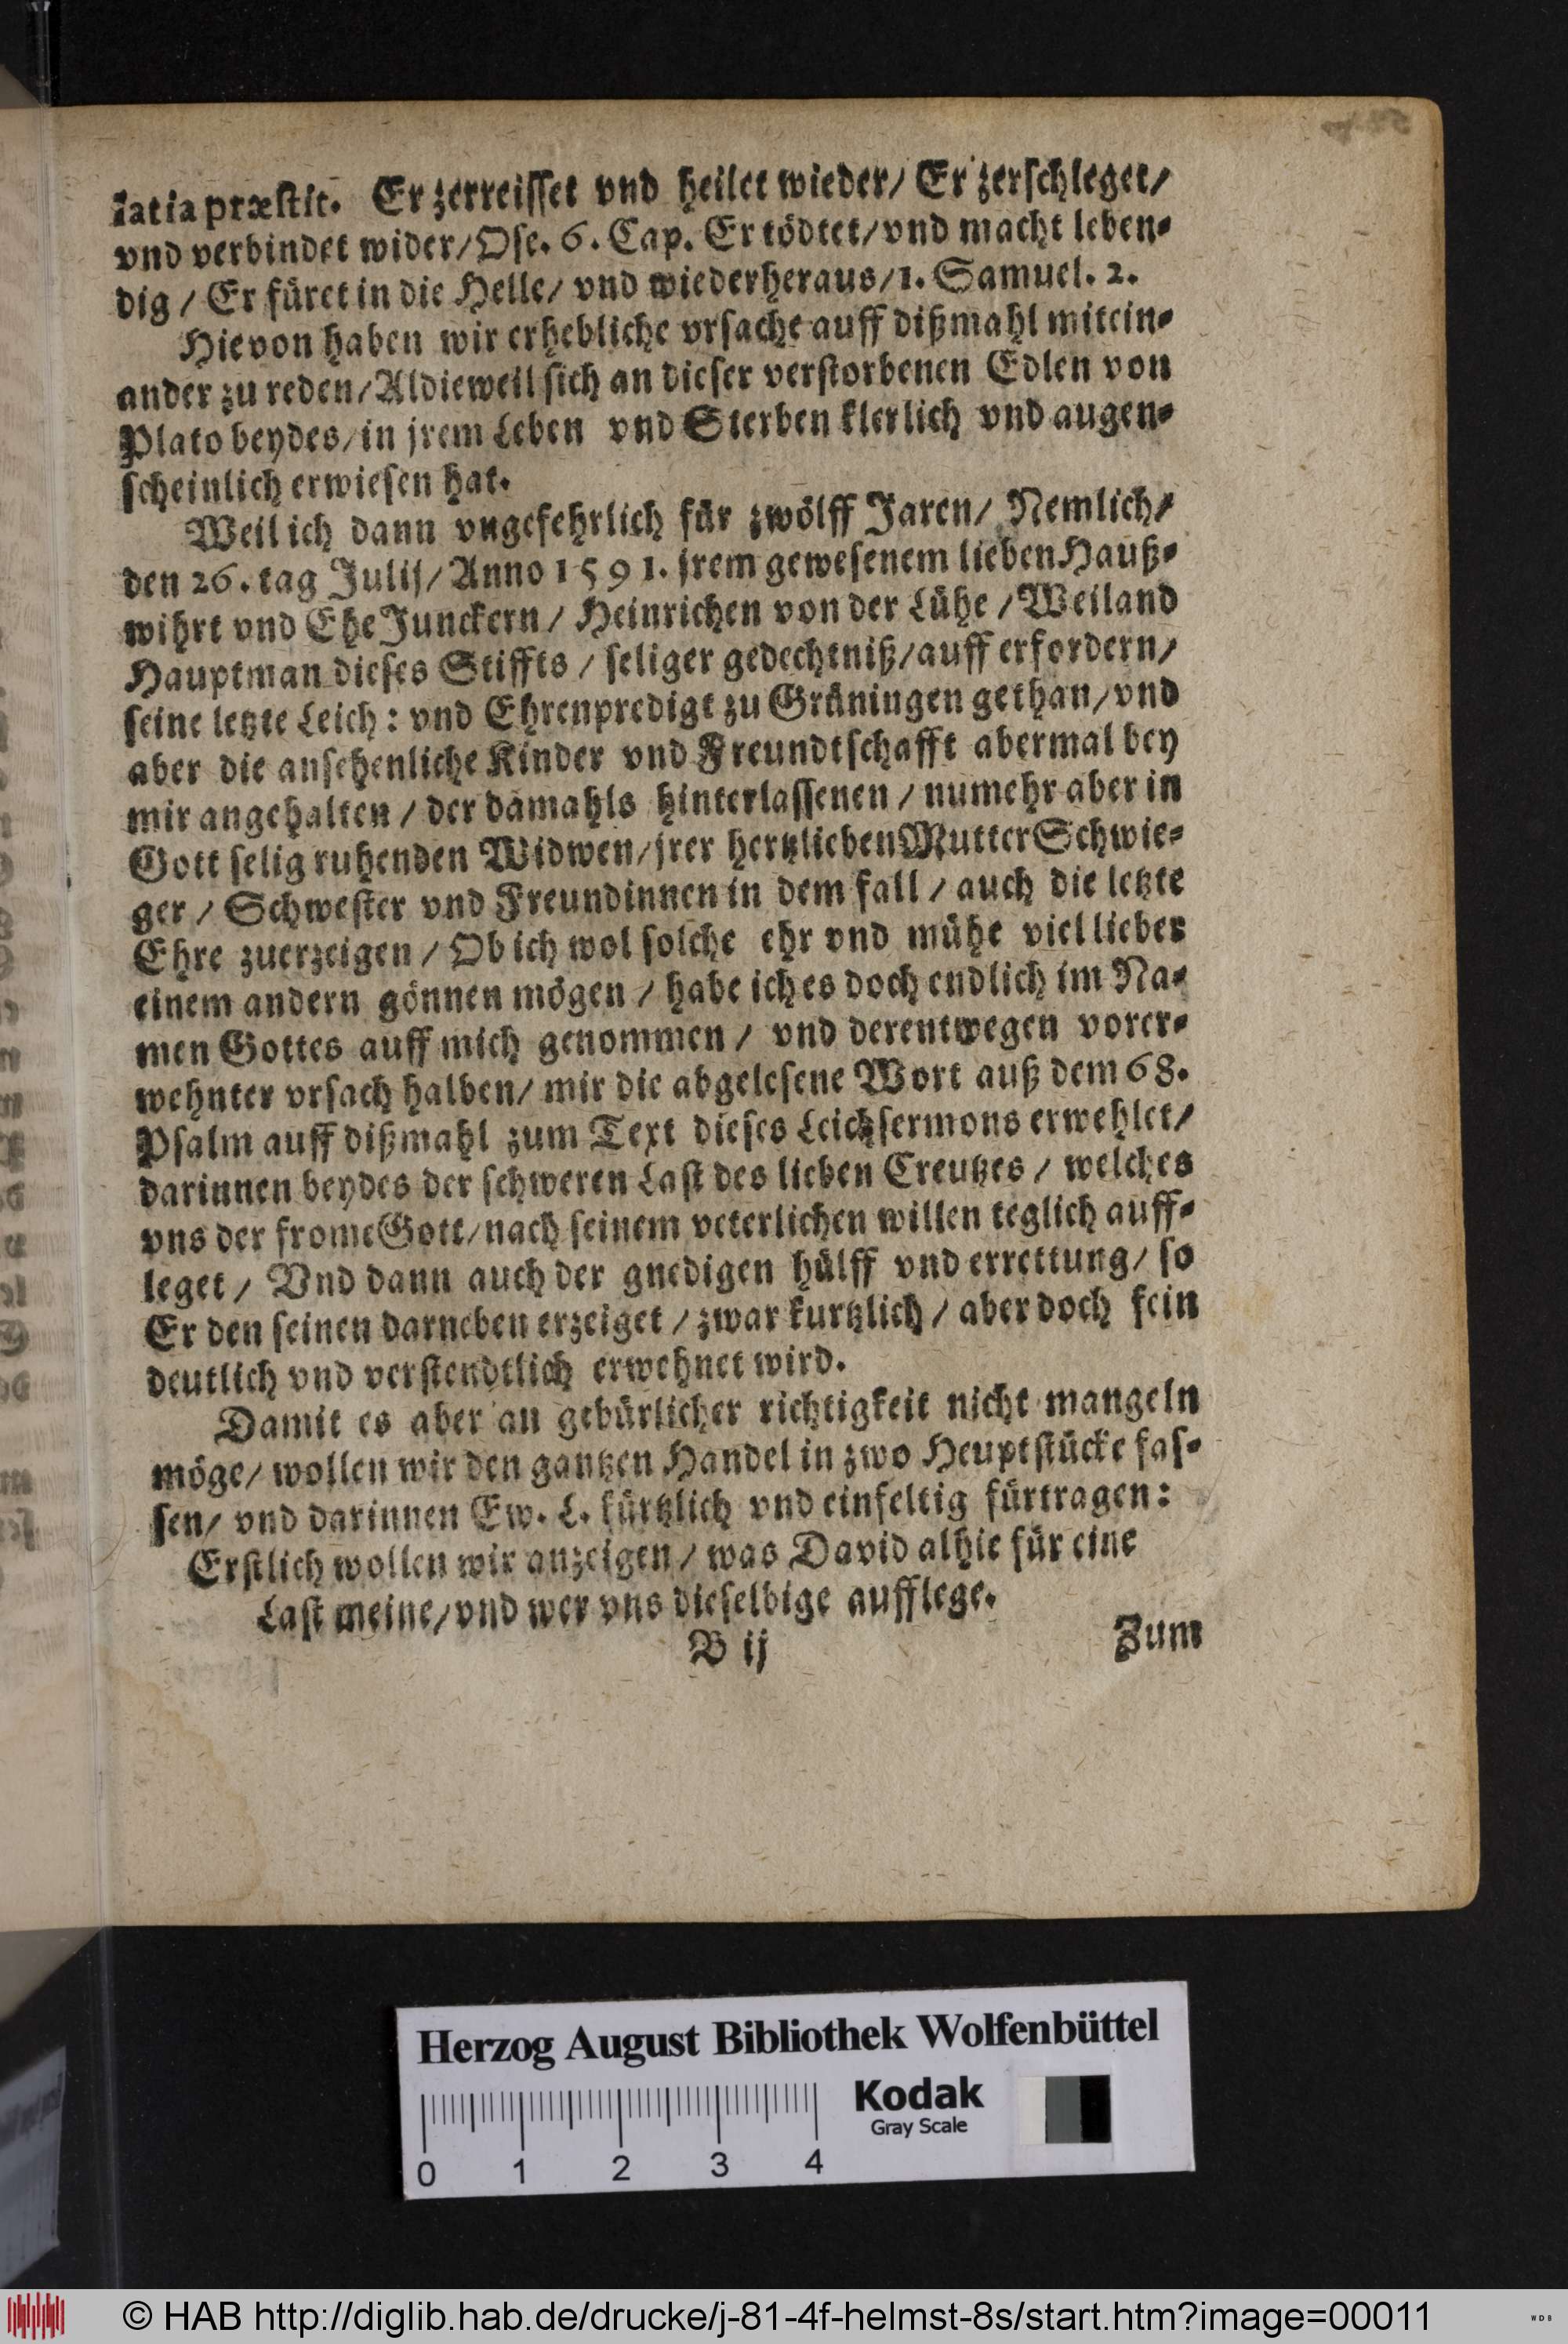 latia præstit. Er zerreisset vnd heilet wieder/ Er zerschleget/
vnd verbindet wider/ Ose. 6. Cap. Er tödtet/ vnd macht leben-
dig / Er füret in die Helle/ vnd wiederheraus/ 1. Samuel. 2.
Hievon haben wir erhebliche vrsache auff dißmahl mitein-
ander zu reden/ Aldieweil sich an dieser verstorbenen Edlen von
Plato beydes/ in jrem Leben vnd Sterben klerlich vnd augen-
scheinlich erwiesen hat.
Weil ich dann vngefehrlich für zwölff Jaren/ Nemlich/
den 26. tag Julij/ Anno 1591. jrem gewesenem lieben Hauß-
wihrt vnd Ehe Junckern / Heinrichen von der Lühe / Weiland
Hauptman dieses Stiffts / seliger gedechtniß/ auff erfordern/
seine letzte Leich: vnd Ehrenpredigt zu Grüningen gethan/ vnd
aber die ansehenliche Kinder vnd Freundtschafft abermal bey
mir angehalten / der damahls hinterlassenen / numehr aber in
Gott selig ruhenden Widwen/ jrer hertzlieben Mutter Schwie-
ger / Schwester vnd Freundinnen in dem fall / auch die letzte
Ehre zuerzeigen / Ob ich wol solche ehr vnd mühe viel lieber
einem andern gönnen mögen / habe ich es doch endlich im Na-
men Gottes auff mich genommen / vnd derentwegen vorer-
wehnter vrsach halben/ mir die abgelesene Wort auß dem 68.
Psalm auff dißmahl zum Text dieses Leichsermons erwehlet/
darinnen beydes der schweren Last des lieben Creutzes / welches
vns der frome Gott/ nach seinem veterlichen willen teglich auff-
leget / Vnd dann auch der gnedigen hülff vnd errettung/ so
Er den seinen darneben erzeiget / zwar kurtzlich / aber doch fein
deutlich vnd verstendtlich erwehnet wird.
Damit es aber an gebürlicher richtigkeit nicht mangeln
möge/ wollen wir den gantzen Handel in zwo Heuptstücke fas-
sen/ vnd darinnen Ew. L. kürtzlich vnd einfeltig fürtragen:
Erstlich wollen wir anzeigen / was David alhie für eine
Last meine/ vnd wer vns dieselbige aufflege.
B ij Zum
Herzog August Bibliothek Wolfenbüttel
Kodak
Gray Scale
0 1 2 3 4
© HAB http://diglib.hab.de/drucke/j-81-4f-helmst-8s/start.htm?image=00011
WDB